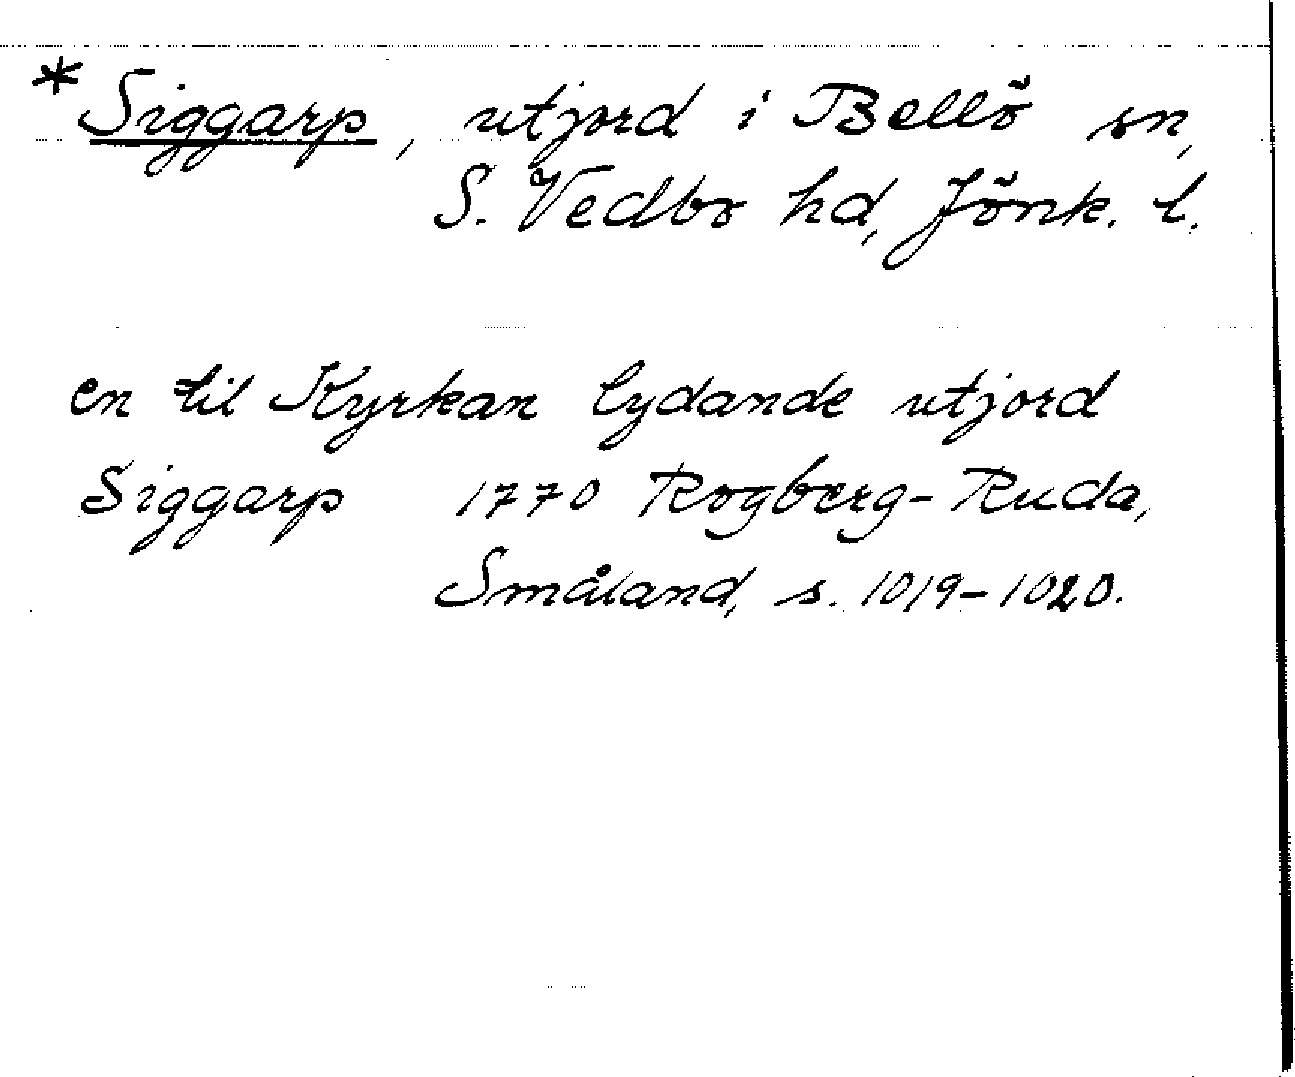 * Siggarp, utjord i Bellö sn,
S. Vedbo hd, Jönk. l.
en til Kyrkan lydande utjord
Siggarp 1770 Rogberg-Ruda,
Småland, s. 1019-1020.